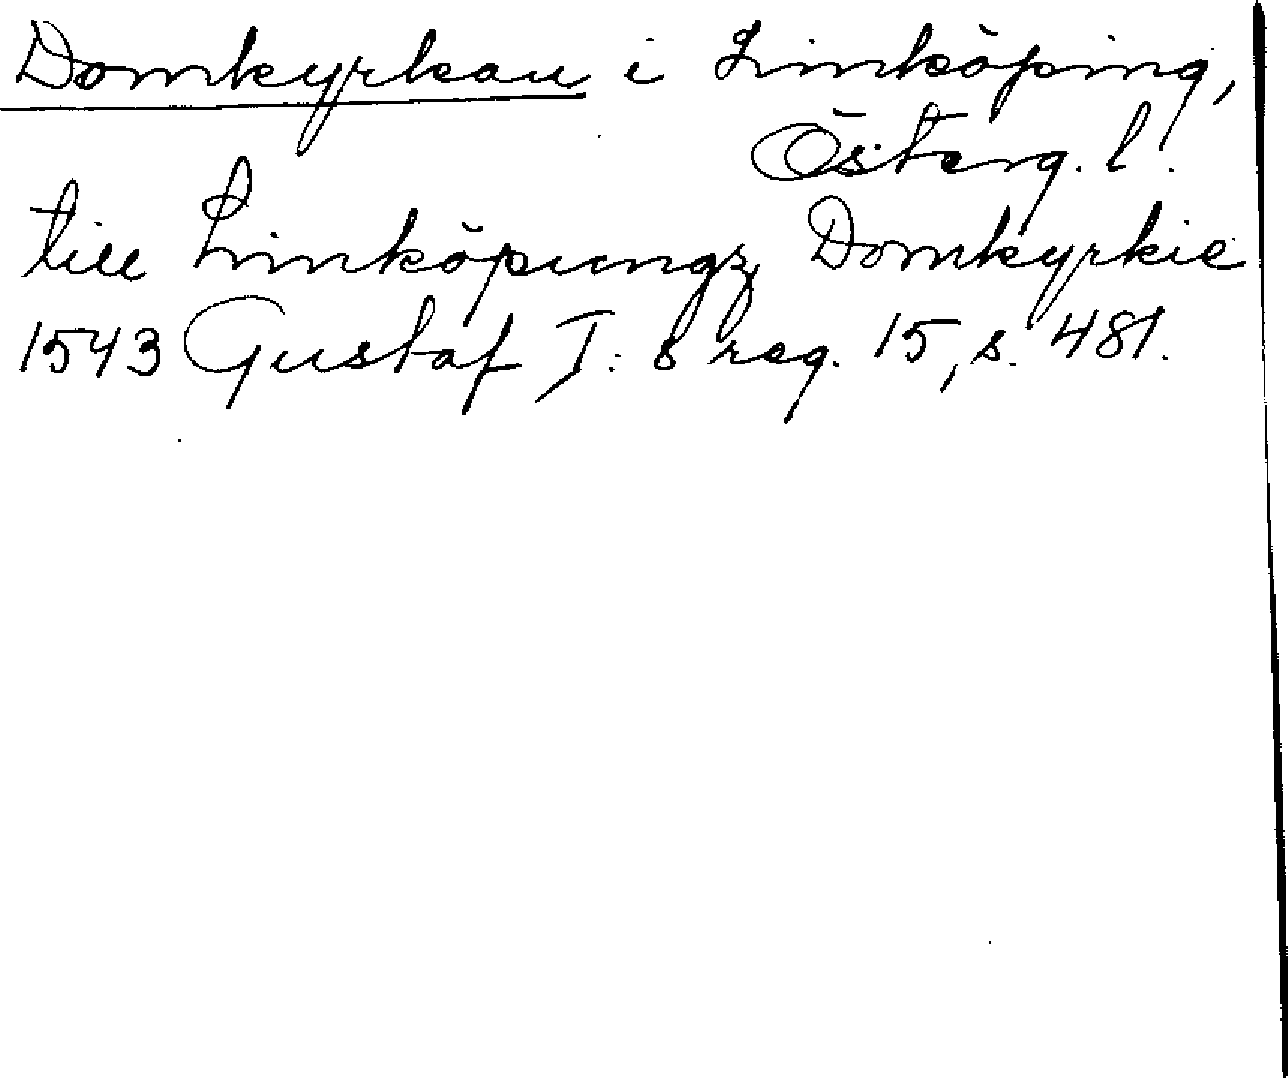 Domkyrkan i Linköping,
Österg. l.
till Linköpungz Domkyrkie
1543 Gustaf I:s reg. 15, s. 481.